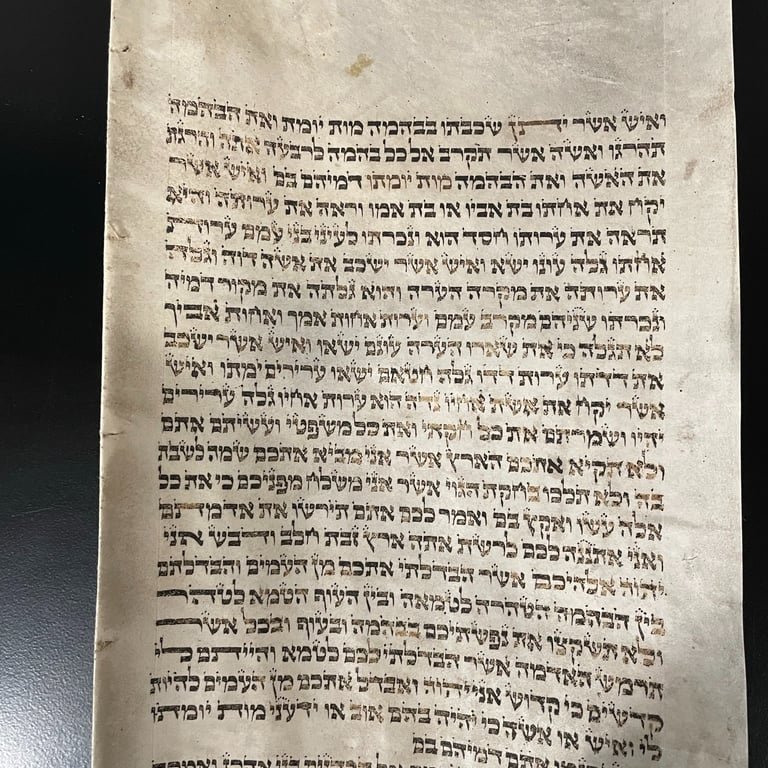 ואיש אשר יתן שכבתו בבהמה מות יומת ואת הבהמה
תהרגו ואשה אשר תקרב אל כל בהמה לרבעה אתה והרגת
את האשה ואת הבהמה מות יומתו דמיהם בם ואיש אשר
יקח את אחתו בת אביו או בת אמו וראה את ערותה והיא
תראה את ערותו חסד הוא ונכרתו לעיני בני עמם ערות
אחתו גלה עונו ישא ואיש אשר ישכב את אשה דוה וגלה
את ערותה את מקרה הערה והוא גלתה את מקור דמיה
ונכרתו שניהם מקרב עמם וערות אחות אמך ואחות אביך
לא תגלה כי את שארו הערה עונם ישאו ואיש אשר ישכב
את דדתו ערות דדו גלה חטאם ישאו ערירים ימתו ואיש
אשר יקח את אשת אחיו נדה הוא ערות אחיו גלה ערירים
יהיו ושמרתם את כל חקתי ואת כל משפטי ועשיתם אתם
ולא תקיא אתכם הארץ אשר אני מביא אתכם שמה לשבת
בה ולא תלכו בחקת הגוי אשר אני משלח מפניכם כי את כל
אלה עשו ואקץ בם ואמר לכם אתם תירשו את אדמתם
ואני אתננה לכם לרשת אתה ארץ זבת חלב ודבש אני
יהוה אלהיכם אשר הבדלתי אתכם מן העמים והבדלתם
בין הבהמה הטהרה לטמאה ובין העוף הטמא לטהר
ולא תשקצו את נפשתיכם בבהמה ובעוף ובכל אשר
תרמש האדמה אשר הבדלתי לכם לטמא והייתם לי
קדשים כי קדוש אני יהוה ואבדל אתכם מן העמים להיות
לי ואיש או אשה כי יהיה בהם אוב או ידעני מות יומתו
אתם דמיהם בם